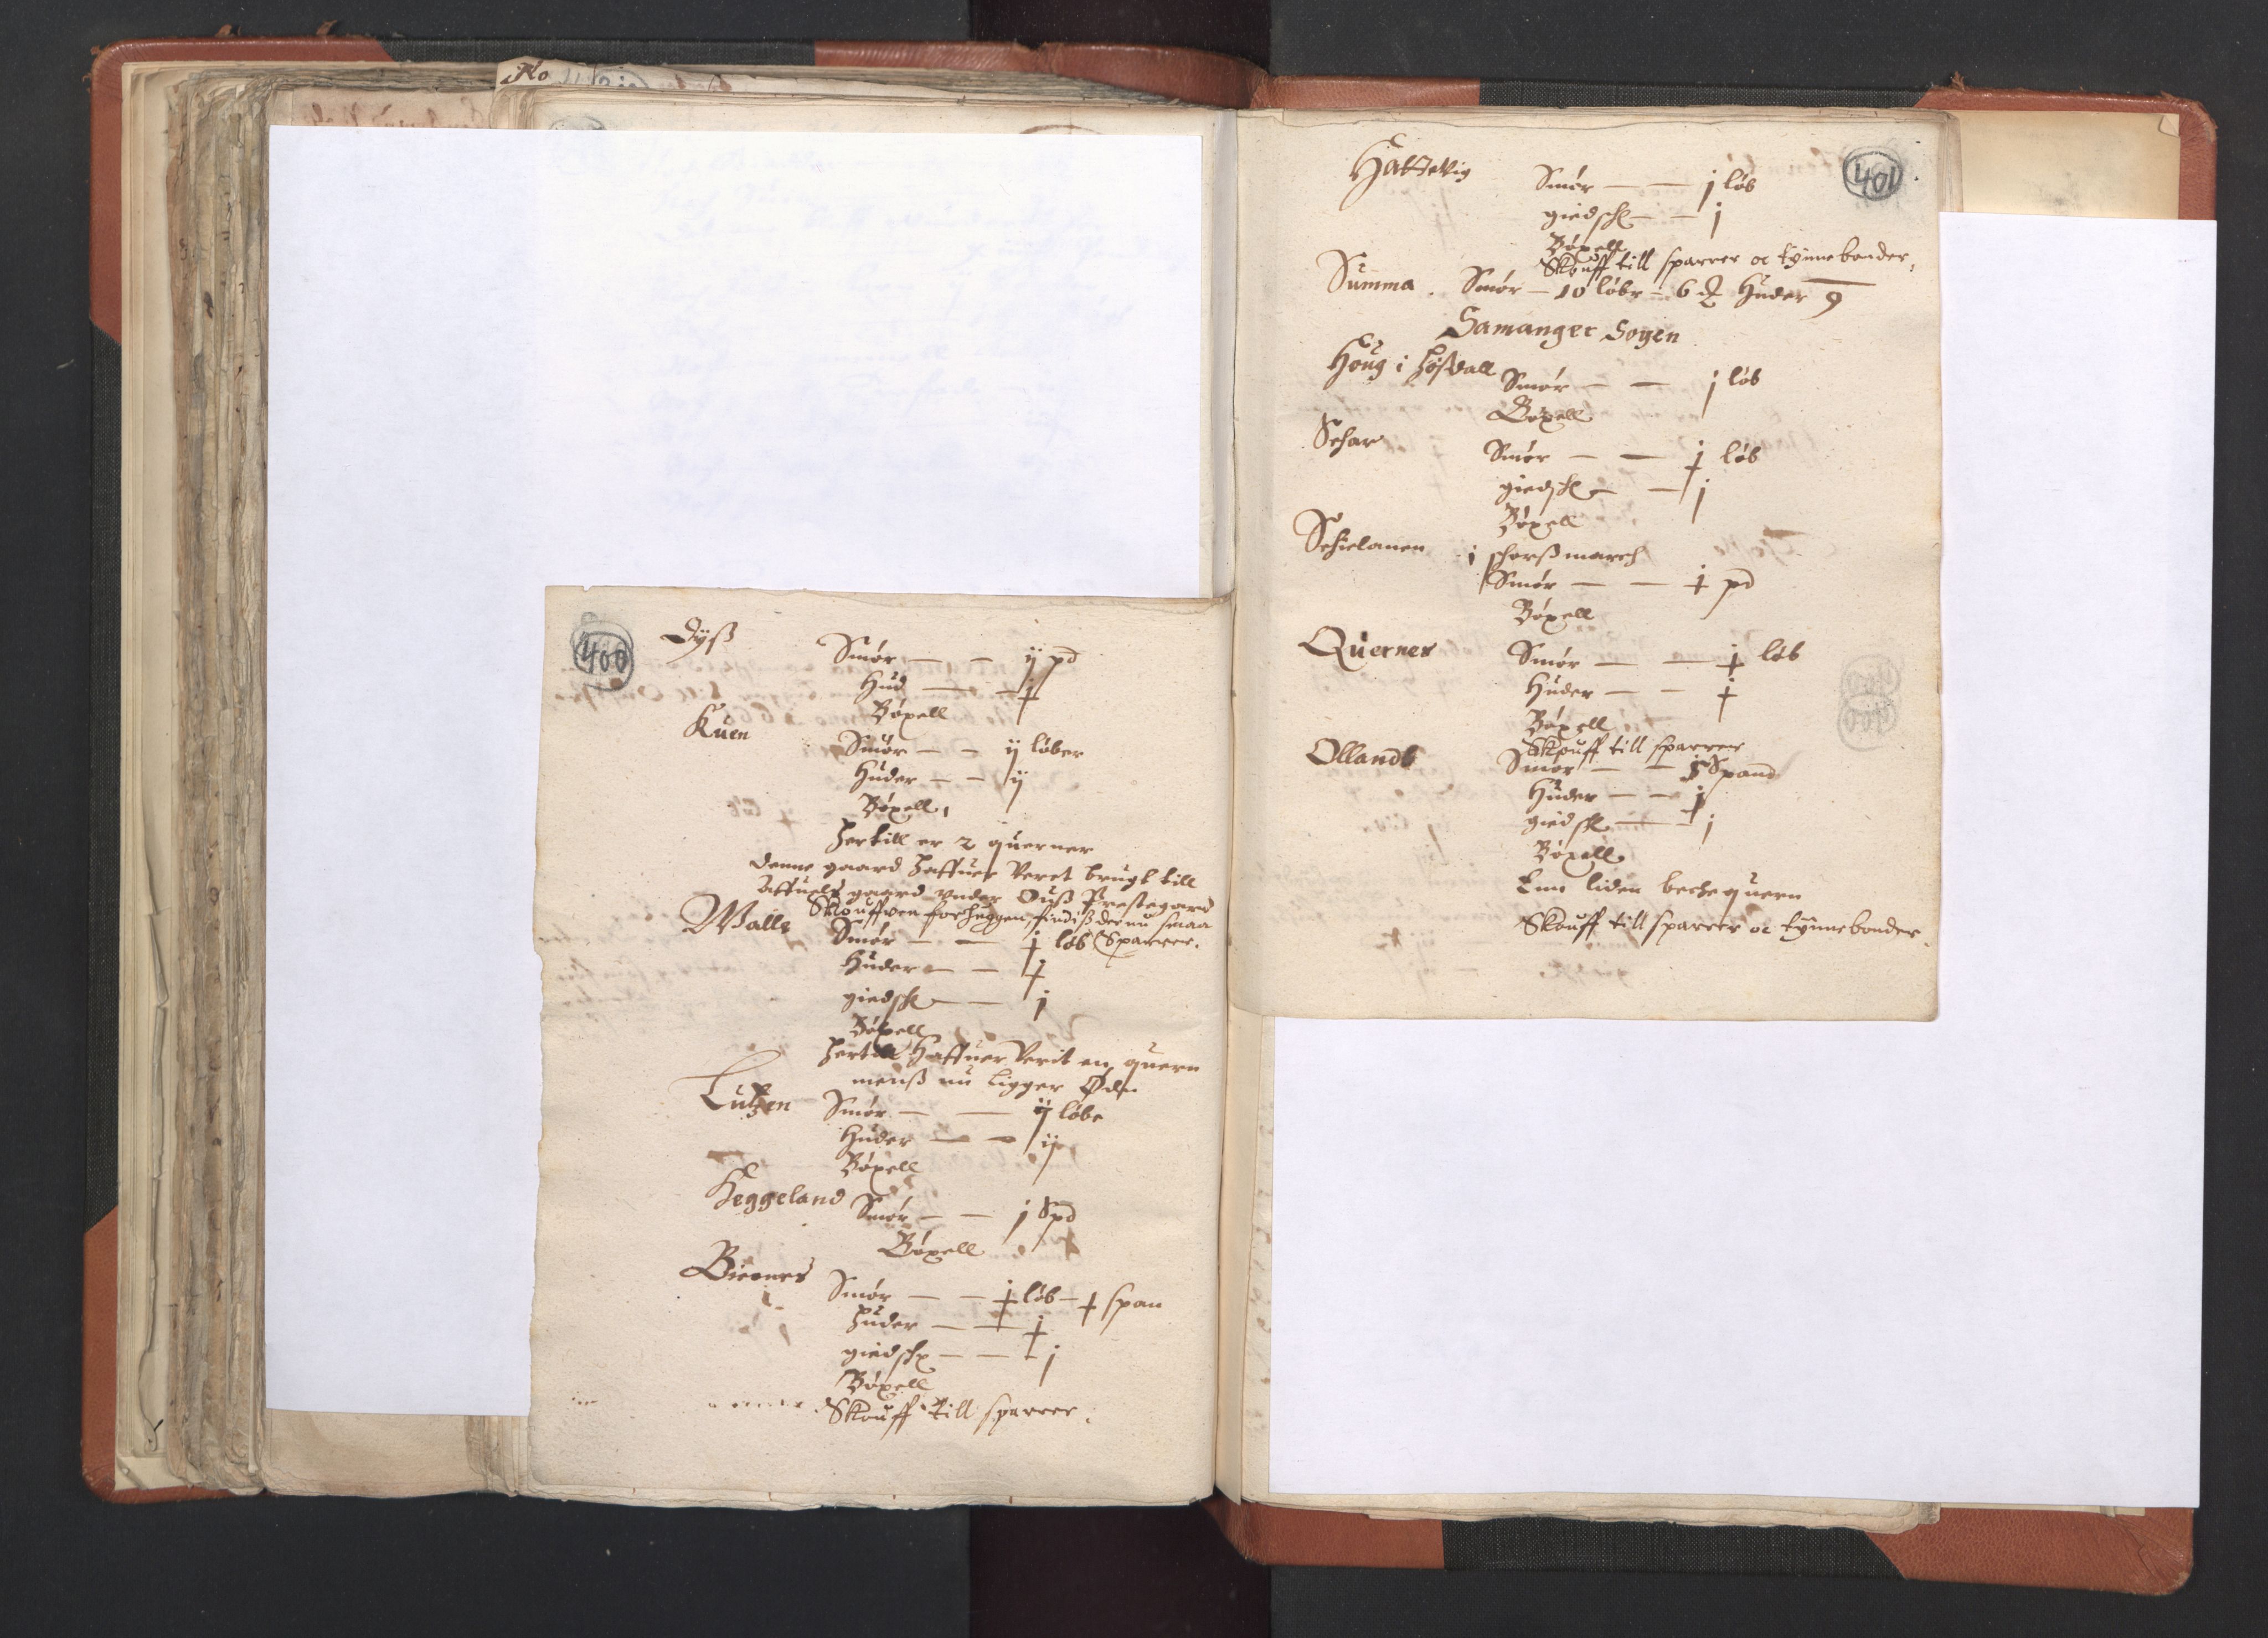 400
Dyß
Smør — — ij pd
Hud — — j
Bøxell
Kuen
Smør — — ij løber
Huder — — ij
Bøxell,
Hertill er 2 querner
Denne gaard haffuer veret brugt till
Affuels gaard vnder Ouß Prestegard
Skouffven forhuggen, findiß der nu smaa
Walle
Smør — — j løb Sparrer.
Huder — — j
giedsk — — j
Bøxell
Hertill Haffuer Verit en quern
menß nu ligger Øde
Lutzen
Smør — — ij løbe
Huder — — ij
Bøxell
Heggeland
Smør — — j Spd
Bøxell
Biernes
Smør — — j løb — j span
Huder — — j
giedsk — — j
Bøxell
Skouff till sparrer.
401
Hattevig
Smør — — j løb
giedsk — — j
Bøxell
Skouff till sparrer oc tynnebonder,
Summa. Smør — 10 løbr — 6 Huder 9
Samanger Sogen
Houg i
Smør — — j løb
Boxell
Sehar
Smør — — j løb
giedsk — — j
Bøxell
Sehielanen i
Smør — — j pd
Bøxell
Quernes
Smør — — j løb
Huder — — j
Bøxell
Skouff till sparrer
Ollandt
Smør — — j Spand
Huder — — j
giedsk — — j
Bøxell
Enn liden bechequern
Skouff till sparrer oc tynnebonder.